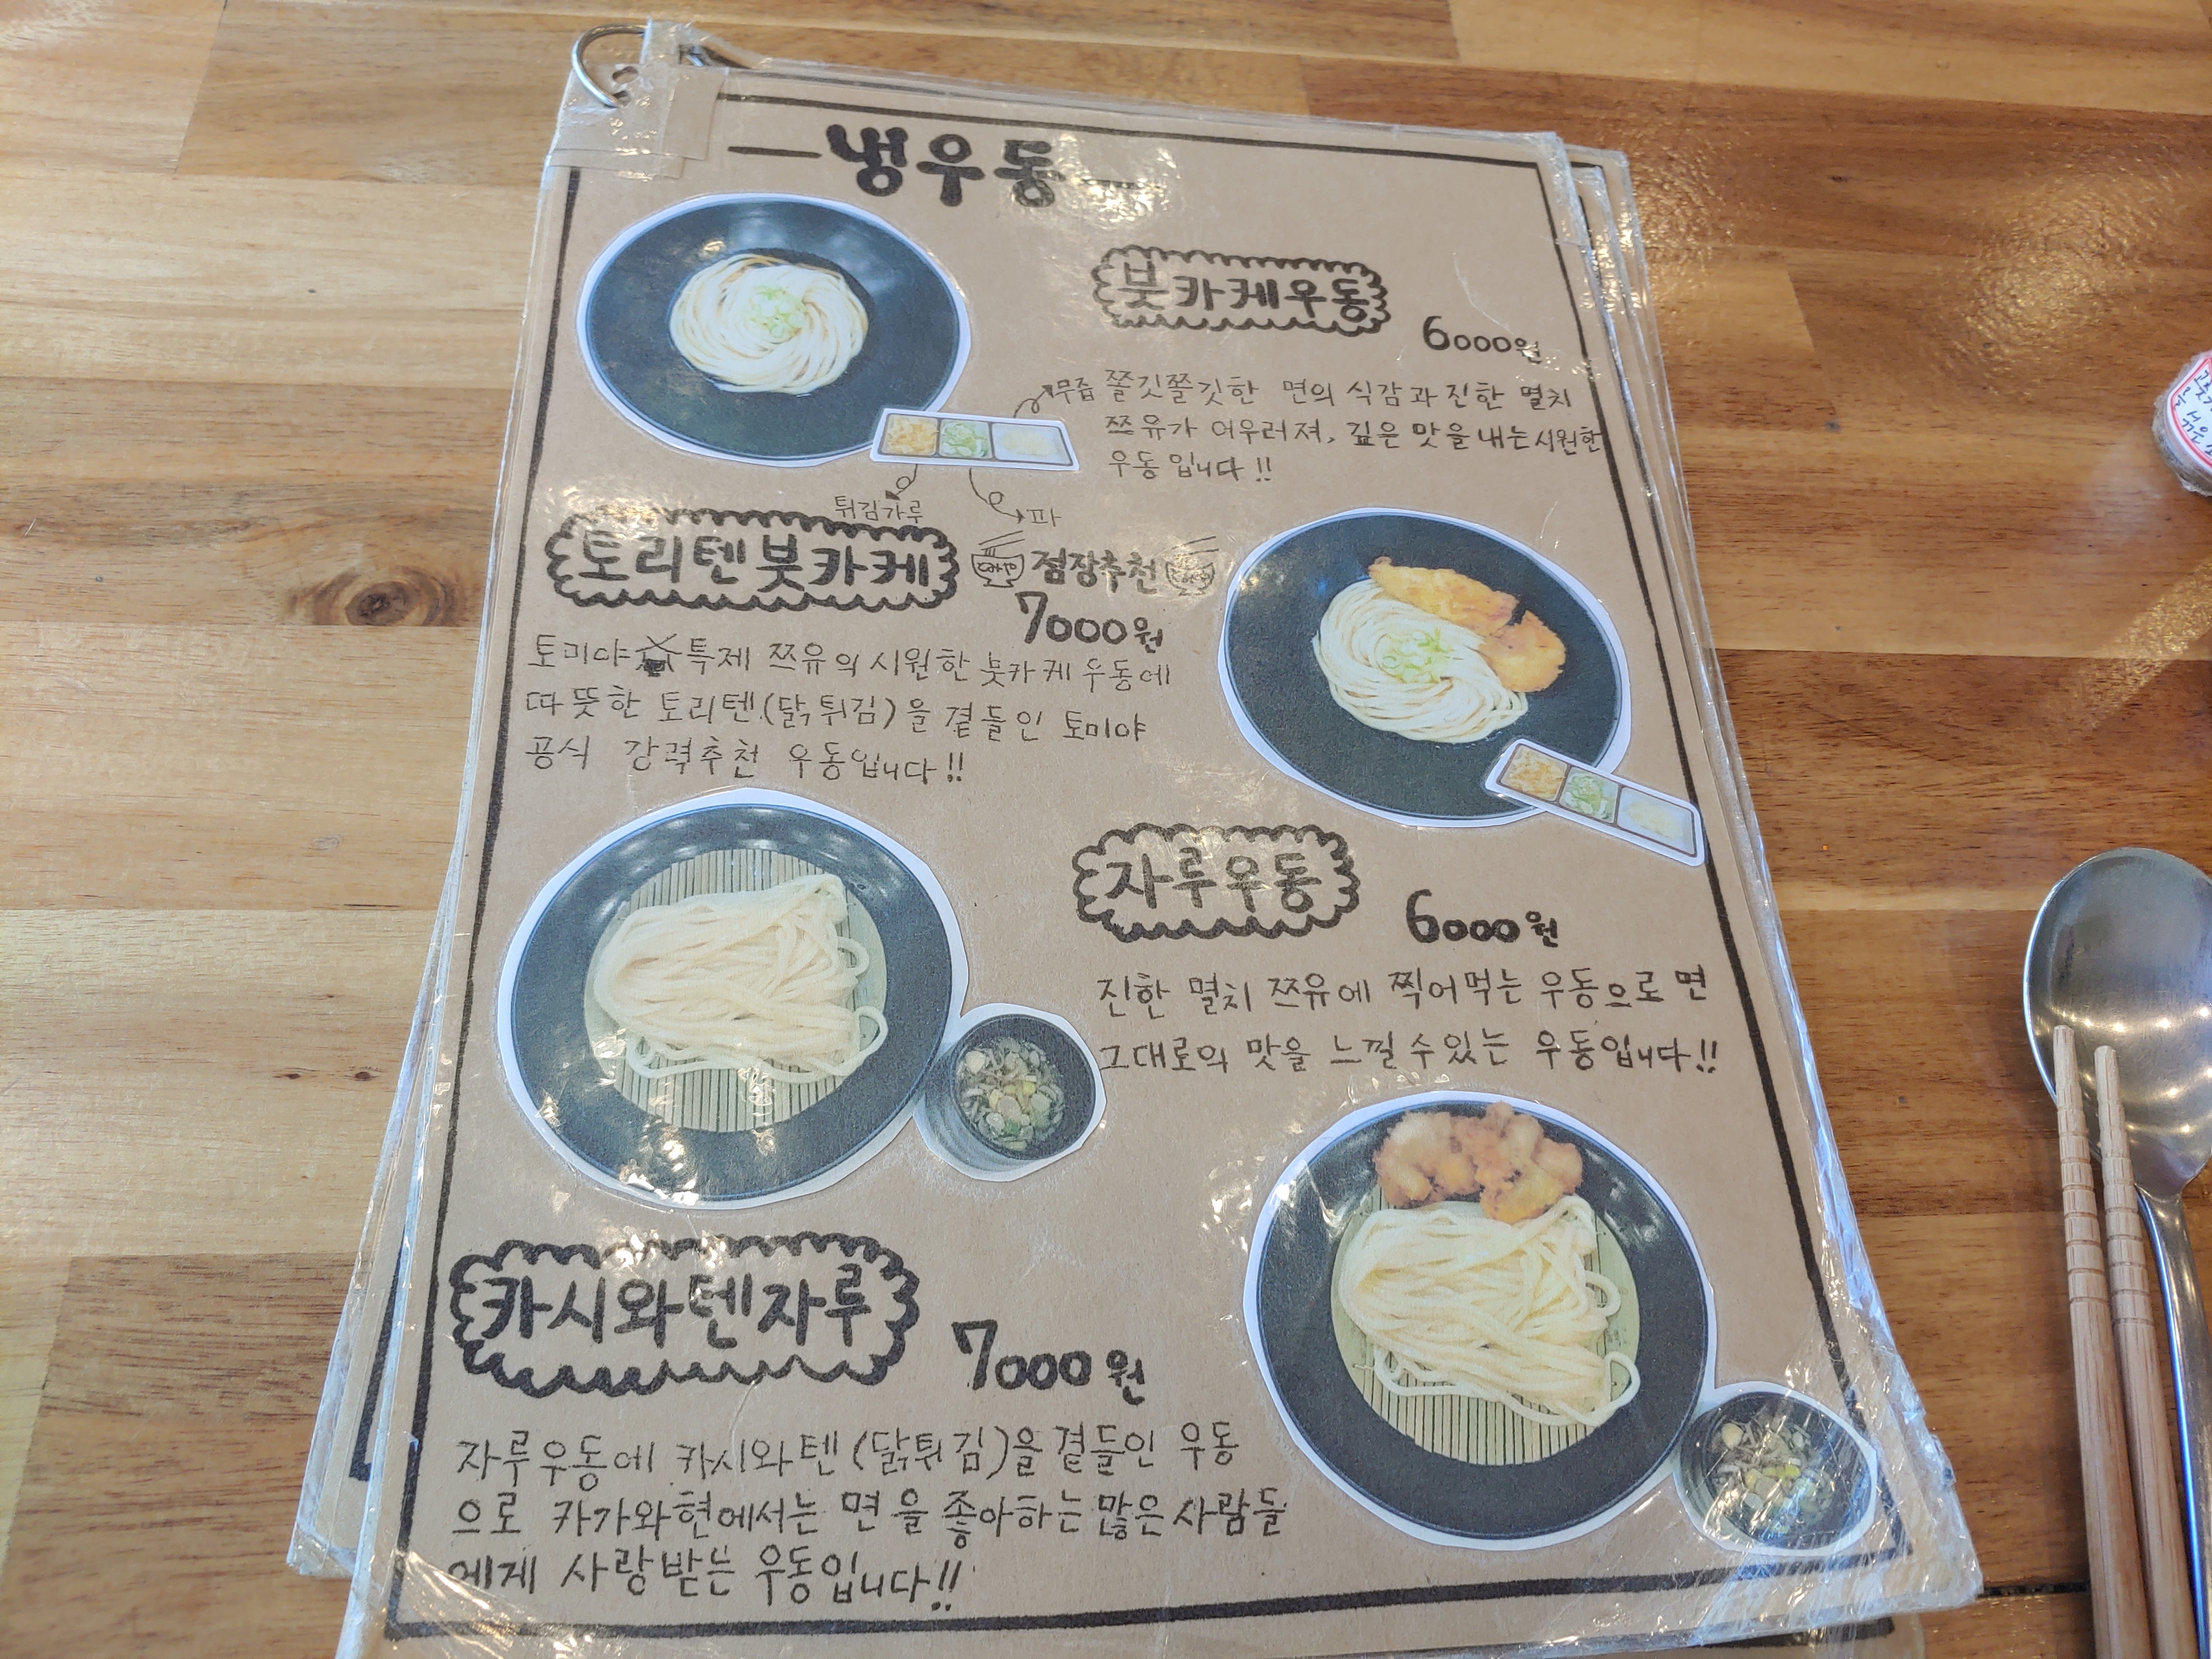 냉우동
붓카케우동
6000원
무즙
쫄깃쫄깃한 면의 식감과 진한 멸치
쯔유가 어우러져, 깊은 맛을 내는 시원한
우동입니다!!
튀김가루
파
토리텐붓카케
점장추천
7000원
토미야 특제 쯔유의 시원한 붓카케우동에
따뜻한 토리텐(닭튀김)을 곁들인 토미야
공식 강력추천 우동입니다!!
자루우동
6000원
진한 멸치 쯔유에 찍어먹는 우동으로 면
그대로의 맛을 느낄 수 있는 우동입니다!!
카시와텐자루
7000원
자루우동에 카시와텐(닭튀김)을 곁들인 우동
으로 카가와현에서는 면을 좋아하는 많은 사람들
에게 사랑받는 우동입니다!!